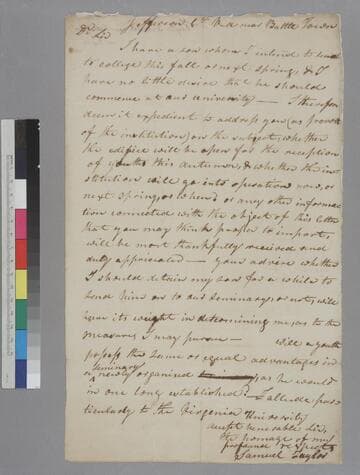 Jefferson Cty Va near Battle Town
Dr Sir
I have a son whom I intend to send
to college this fall or next spring, & I
have no little desire that he should
commence at our university — I therefore
deem it expedient to address you, as provost
of the institution, on the subject, whether
the edifice will be open for the reception
of youths this autumn, & whether the in-
stitution will go into operation now, or
next spring, or when? or any other informa-
tion connected with the object of this letter
that you may think proper to impart,
will be most thankfully received and
duly appreciated — your advice whether
I should detain my son for a while to
send him on to our seminary, or not, will
have its weight in determining me as to the
measures I may pursue — will a youth
possess the same or equal advantages in
seminary
a newly organised as he would
in one long established? — I allude par-
ticularly to the Virginia University
accept venerable Sir,
the homage of my
profound respects
Samuel Taylor